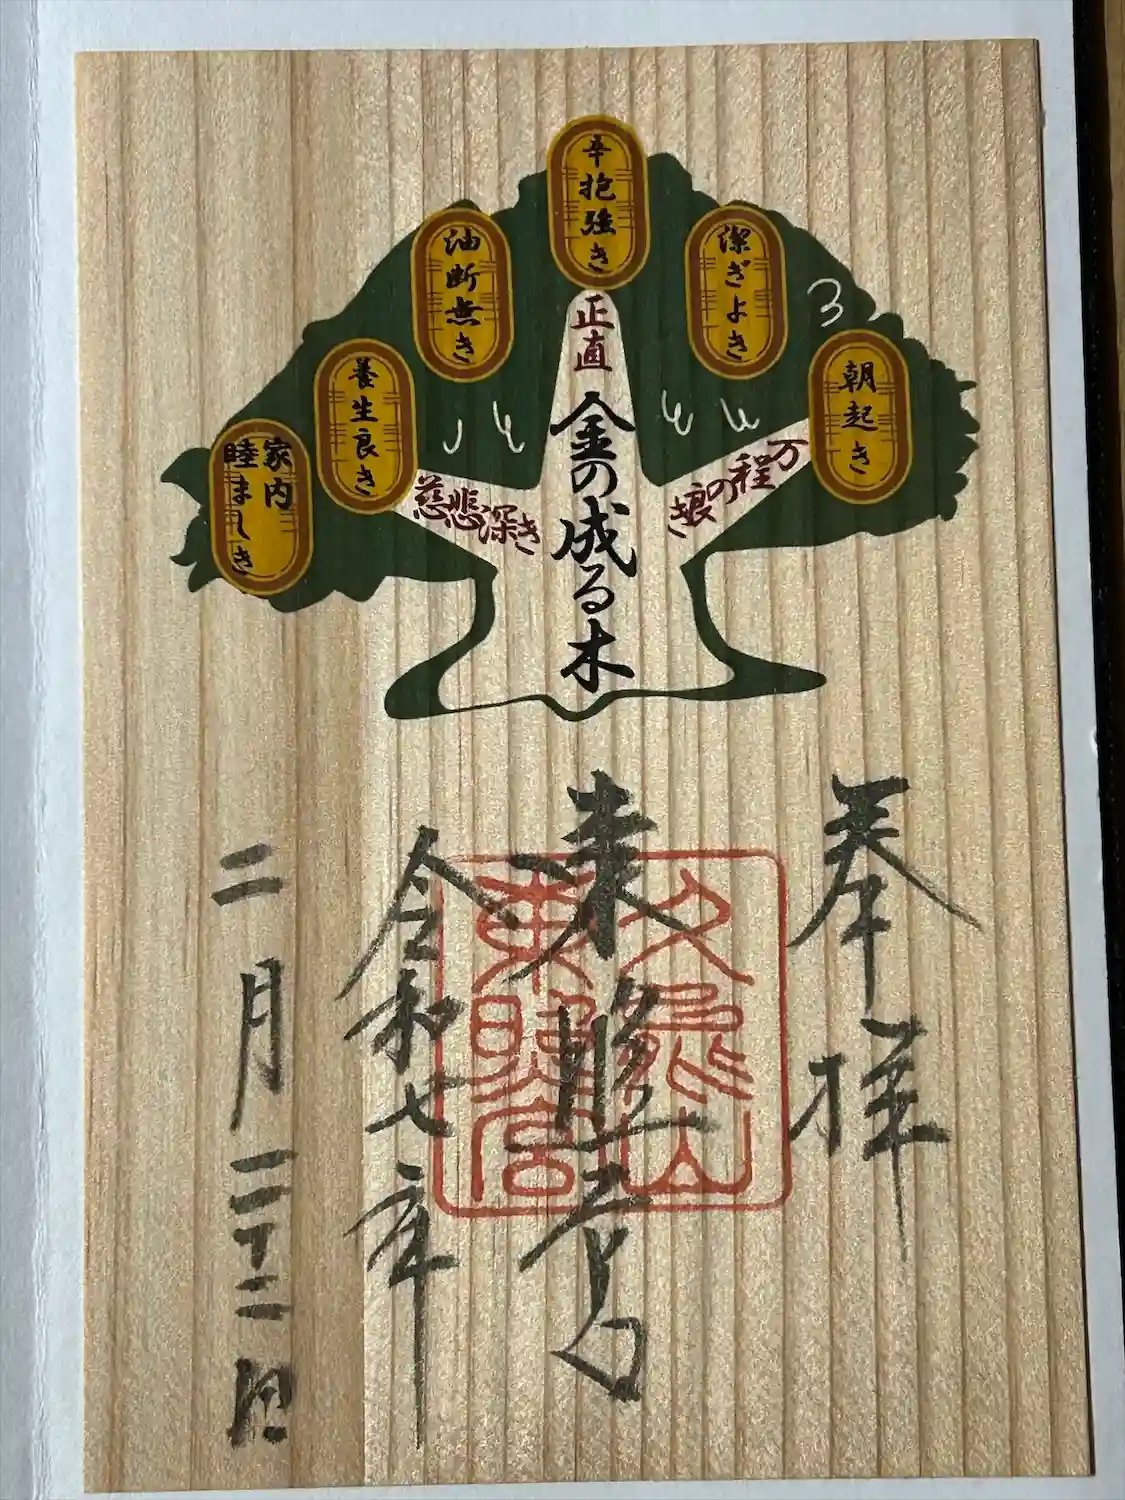 朝起き
潔ぎよき
辛抱強き
油断無き
養生良き
家内
睦ましき
万程の良き
正直
慈悲深き
金の成る木
奉拝
東照宮
久能山
東照宮
令和七年
二月二十二日